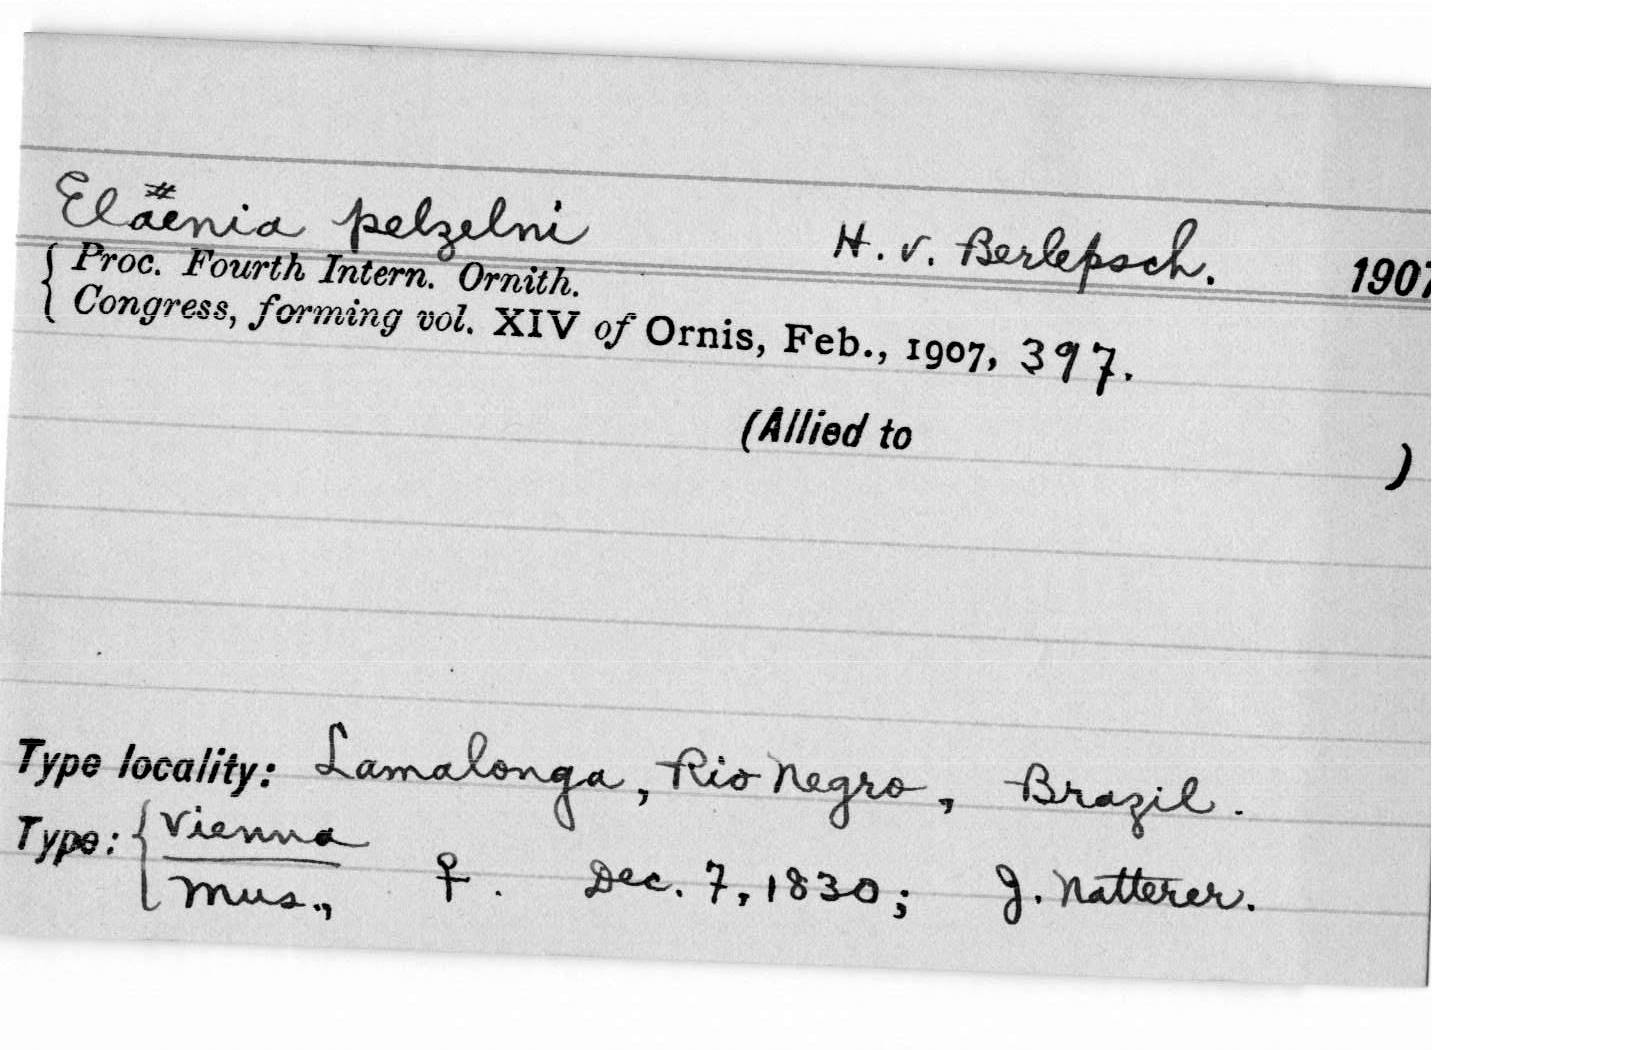 Elaenia pelzelni H. v. Berlepsch. 1907
Proc. Fourth Intern. Ornith.
Congress, forming vol. XIV of Ornis, Feb., 1907, 397.
(Allied to )
Type locality: Lamalonga, Rio Negro, Brazil.
Type: Vienna
Mus., ♀. Dec. 7, 1830; J. Natterer.